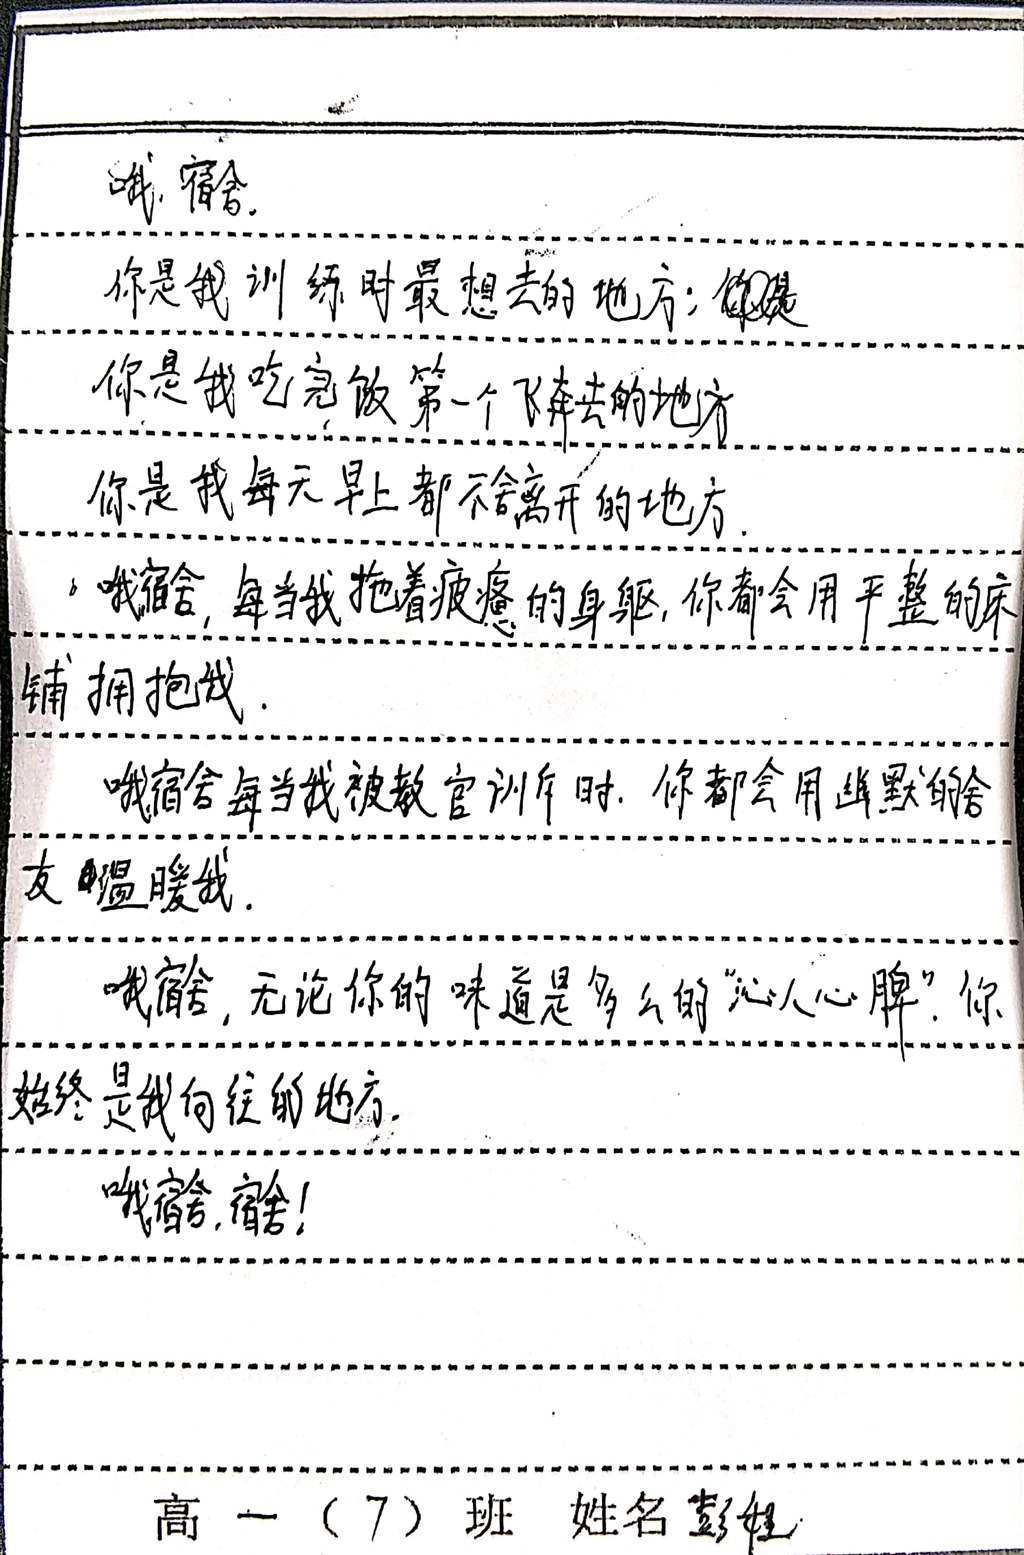 哦,宿舍.
你是我训练时最想去的地方;
你是我吃完饭第一个飞奔去的地方
你是我每天早上都不舍离开的地方.
哦宿舍,每当我拖着疲惫的身躯,你都会用平整的床
铺拥抱我.
哦宿舍每当我被教官训斥时.你都会用幽默的舍
友温暖我.
哦宿舍,无论你的味道是多么的“沁人心脾”.你
始终是我向往的地方.
哦宿舍,宿舍!
高一(7)班 姓名彭